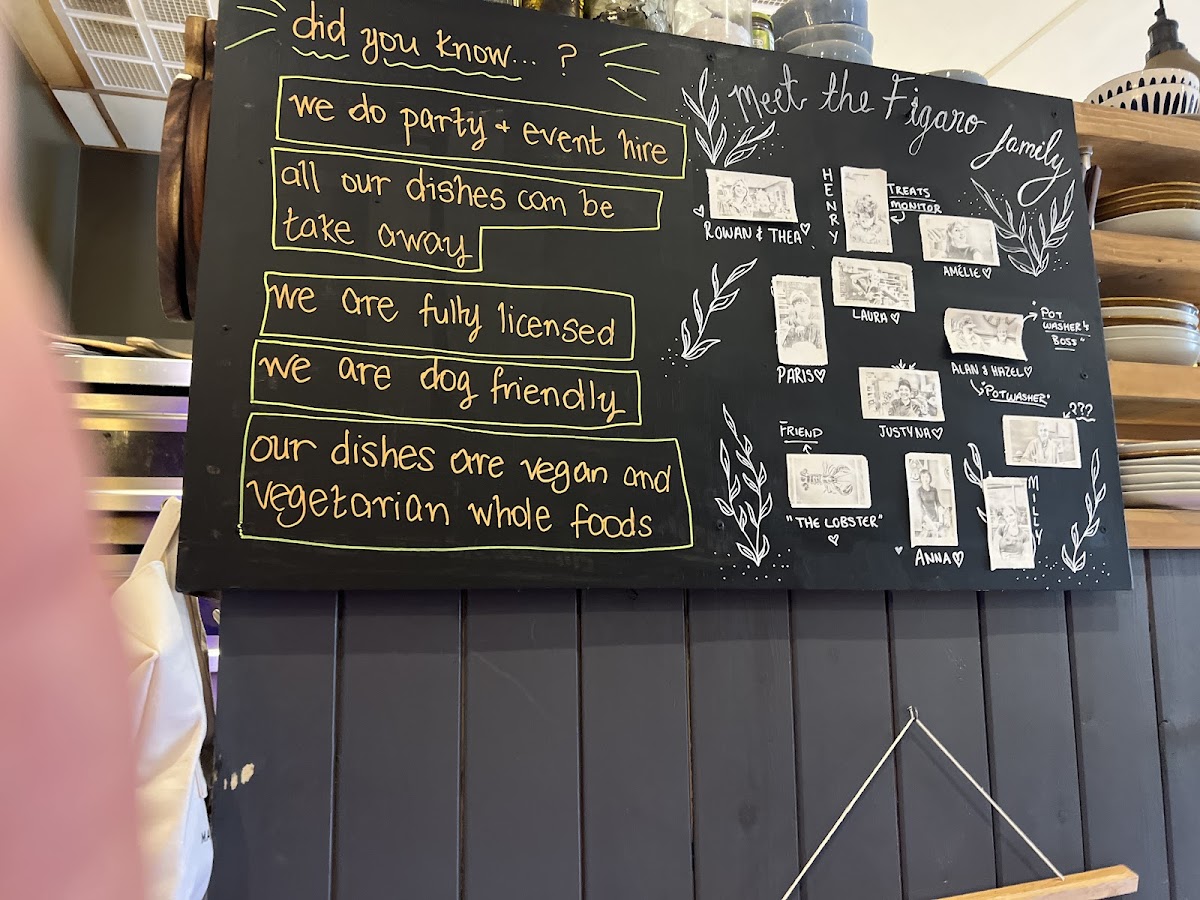 did you know... ?
we do party + event hire
all our dishes can be
take away
we are fully licensed
we are dog friendly
our dishes are vegan and
vegetarian whole foods
Meet the Figaro
family
ROWAN & THEA
HENRY
TREATS
MONITOR
AMÉLIE
LAURA
PARIS
"POT
WASHER'S
BOSS"
ALAN & HAZEL
"POTWASHER"
JUSTYNA
???
FRIEND
"THE LOBSTER"
ANNA
MILLY